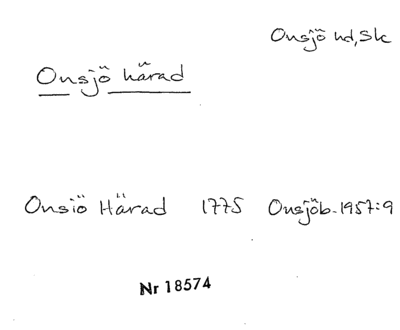 Onsjö hd, Sk
Onsjö härad
Onsiö Härad 1775 Onsjöb. 1957:9
Nr 18574